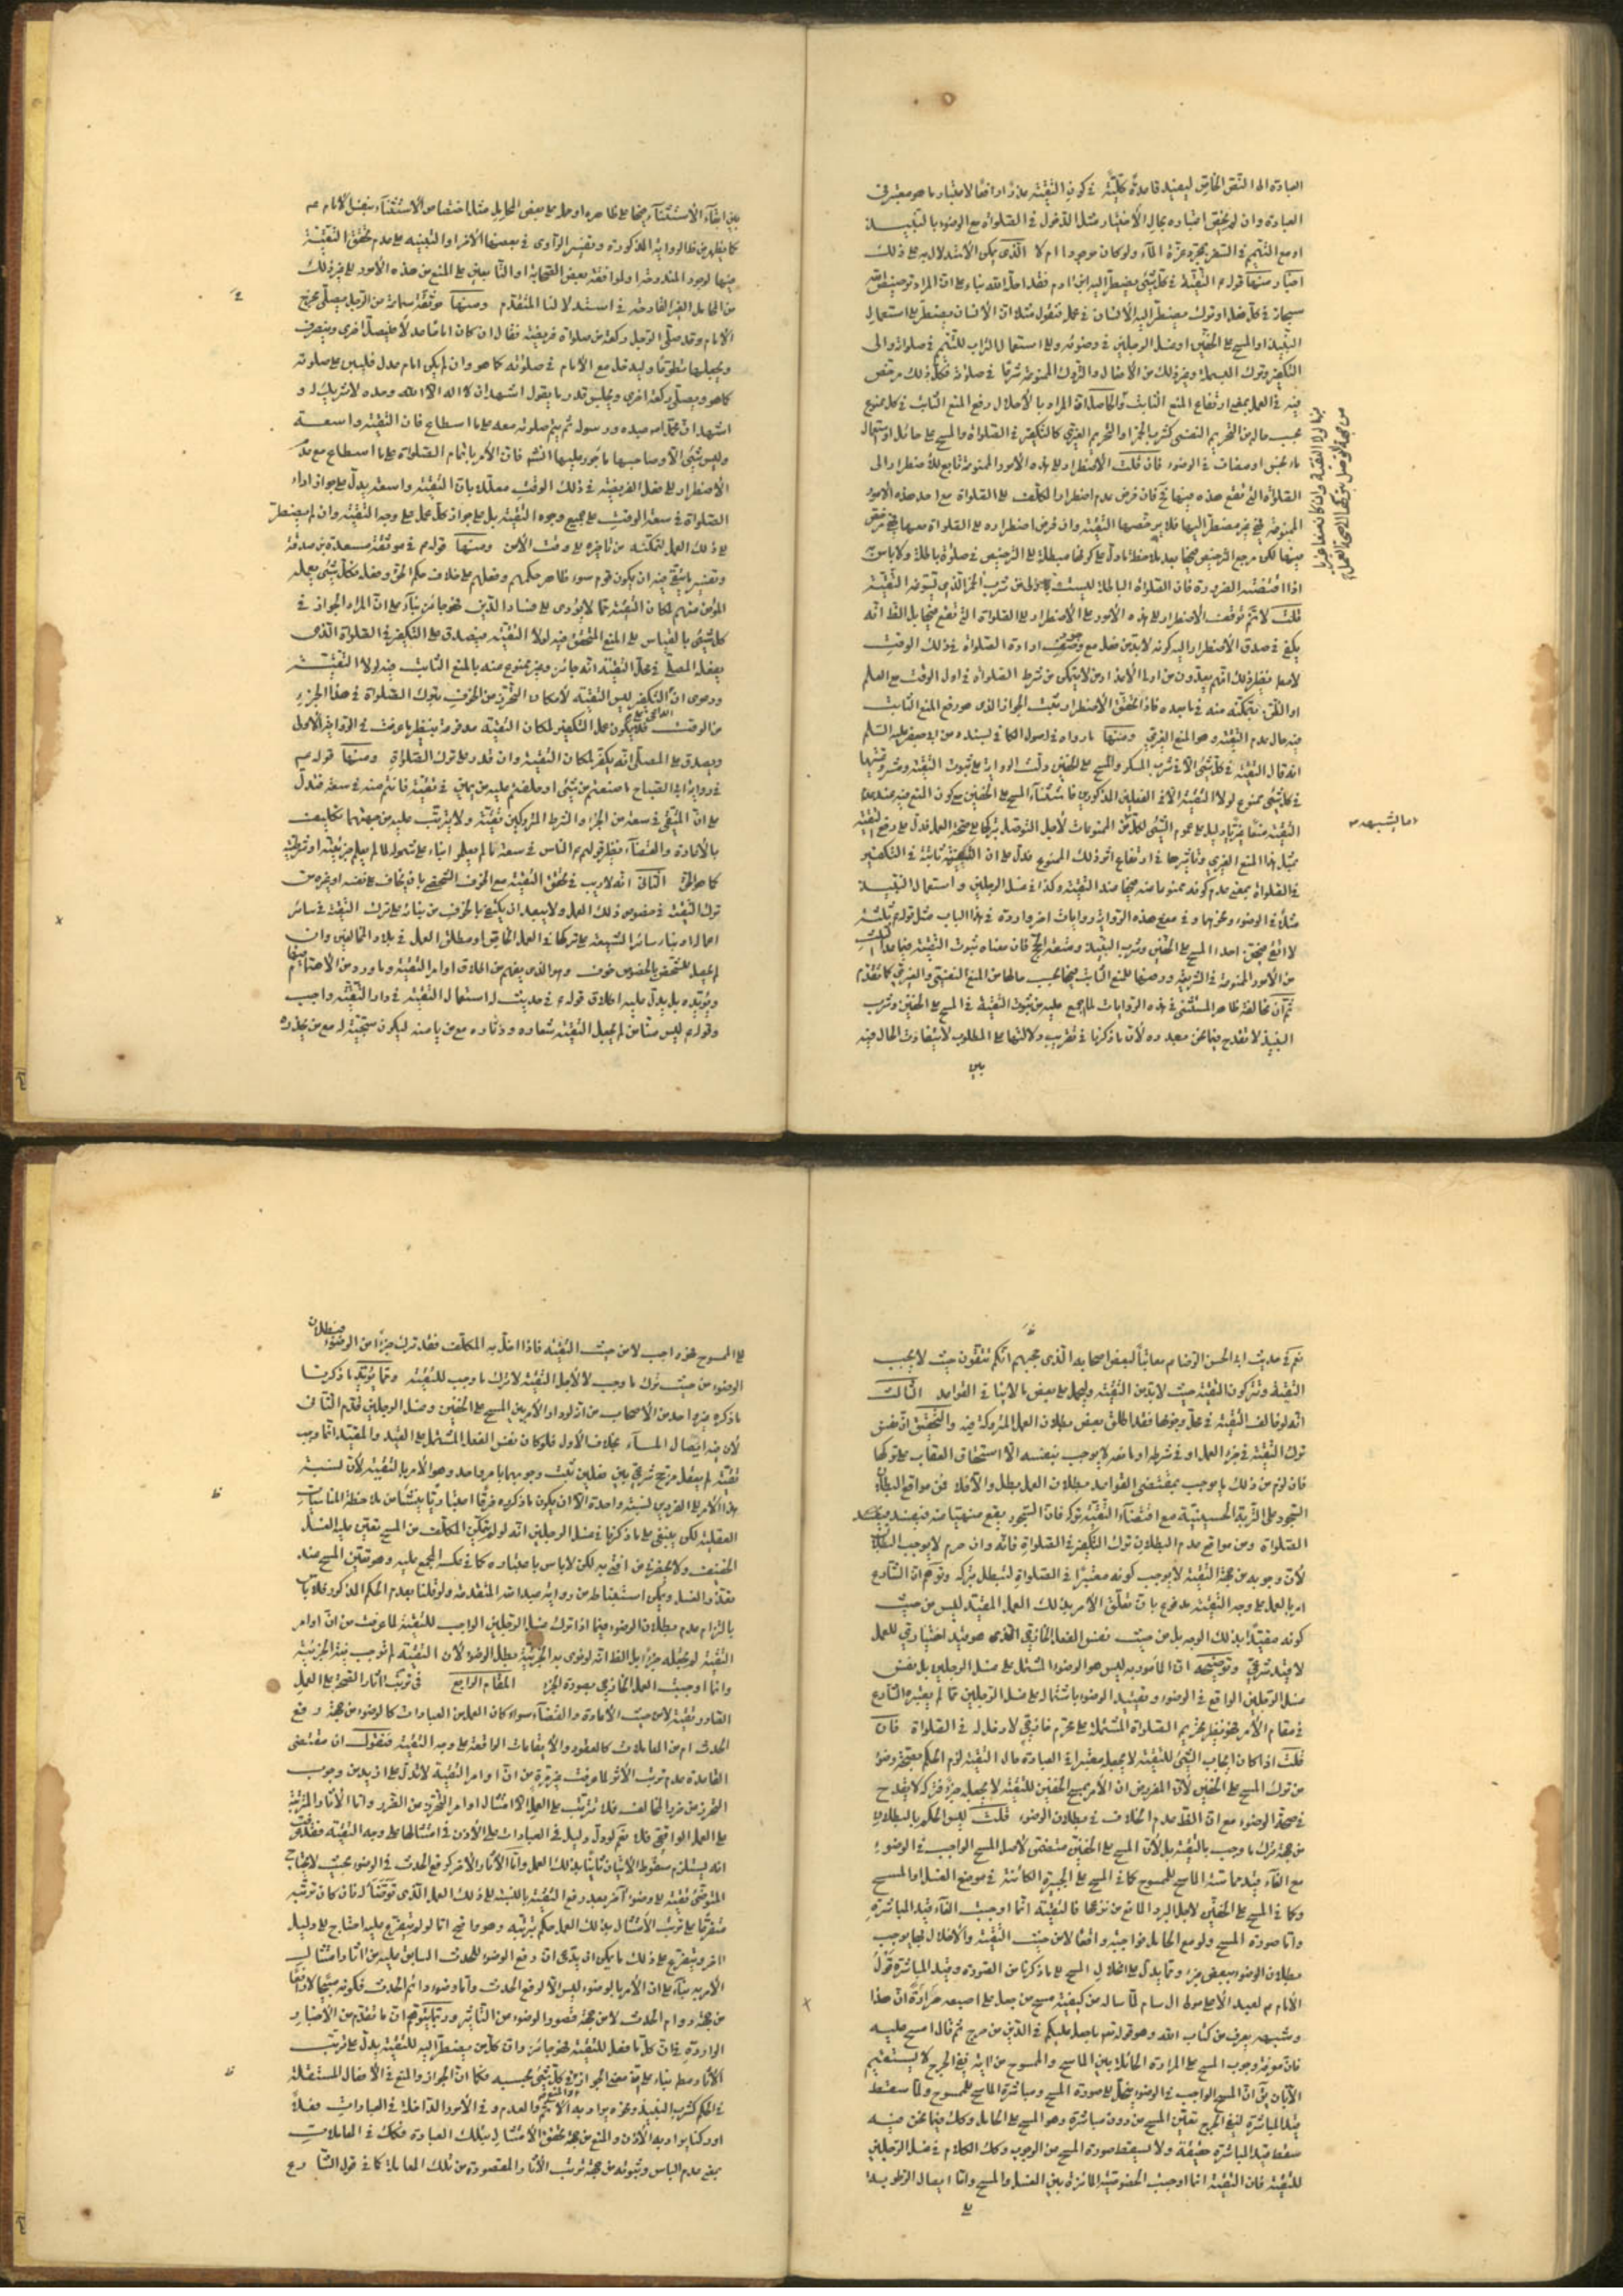 العبادة الى النص الخاص ليفيد قاعدة كلية في كون التقية عذرا رافعا لاعتبار ما هو معتبر في
العبادة وان لم يختص اعتباره بحال الاختيار مثل الدخول في الصلوة مع الوضوء بالنبيذ
او مع التيمم في السفر بمجرد عزة الماء ولو كان موجودا ام لا الذي يمكن الاستدلال به على ذلك
اخبار منها قوله ع التقية في كل شيء يضطر اليه ابن ادم فقد احله الله بناء على ان المراد ترخيص الله
سبحانه في كل فعل او ترك يضطر اليه الانسان في عمله فنقول مثلا ان الانسان يضطر الى استعمال
النبيذ او المسح على الخفين او غسل الرجلين في وضوئه والى استعمال التراب للتيمم في صلوته والى
التكفير وترك البسملة وغير ذلك من الافعال والتروك الممنوعة شرعا في صلوته فكل ذلك مرخص
فيه في العمل بمعنى ارتفاع المنع الثابت والحاصل ان المراد بالاحلال رفع المنع الثابت في كل ممنوع
بحسب حاله من التحريم النفسي كشرب الخمر او التحريم الغيري كالتكفير في الصلوة والمسح على حائل او استعمال
ماء نجس او مضاف في الوضوء فان قلت الاضطرار الى هذه الامور الممنوعة تابع للاضطرار الى
الصلوة التي تقع هذه فيها فان فرض عدم اضطرار المكلف الى الصلوة مع احد هذه الامور
الممنوعة فهي غير مضطر اليها فلا يرخصها التقية وان فرض اضطراره الى الصلوة معها فهي مرخص
فيها لكن مرجع الترخيص فيها بعد ملاحظة ما دل على كونها مبطلة الى الترخيص في صلوة باطلة ولا باس به
اذا اقتضته الضرورة فان الصلوة الباطلة ليست اولى من شرب الخمر الذي تسوغه التقية
قلت لا نم توقف الاضطرار الى هذه الامور على الاضطرار الى الصلوة التي تقع فيها بل الظ انه
يكفي في صدق الاضطرار اليه كونه لا بد من فعله مع وصف ارادة الصلوة في ذلك الوقت
لا مطلقا نظير ذلك انهم يعدون من اولى الاعذار من لا يتمكن من شرط الصلوة في اول الوقت مع العلم
او الظن بتمكنه منه فيما بعده فاذا تحقق الاضطرار ثبت الجواز الذي هو رفع المنع الثابت
فيه حال عدم التقية وهو المنع الغيري ومنها ما رواه في اصول الكافي بسنده عن ابي جعفر عليه السلام
انه قال التقية في كل شيء الا في شرب المسكر والمسح على الخفين دلت الرواية على ثبوت التقية ومشروعيتها
في كل شيء ممنوع لولا التقية الا في الفعلين المذكورين فاستثناء المسح على الخفين مع كون المنع فيه عند عدم
التقية منعا غيريا دليل على عموم الشيء لكل من الممنوعات لاجل التوصل بتركها الى صحة العمل فدل على رفع التقية
لمثل هذا المنع الغيري وتاثيرها في ارتفاع اثر ذلك الممنوع فدل على ان التقية ثابتة في التكفير
في الصلوة بمعنى عدم كونه ممنوعا منه فيها عند التقية وكذا في غسل الرجلين واستعمال النبيذ
مثلا في الوضوء ونحوهما وفي معنى هذه الرواية روايات اخر واردة في هذا الباب مثل قوله ع ثلثة
لا اتقي فيهن احدا المسح على الخفين وشرب النبيذ ومتعة الحج فان معناه ثبوت التقية فيما عدا الثلث
من الامور الممنوعة في الشريعة ورفعها للمنع الثابت فيها بحسب حالها من المنع النفسي والغيري كما تقدم
ثم ان مخالفة ظاهر المستثنى في هذه الروايات لما اجمع عليه من ثبوت التقية في المسح على الخفين وشرب
النبيذ لا تقدح فيما نحن بصدده لان ما ذكرنا في تقريب دلالتها على المطلوب لا يتفاوت الحال فيه
بين
اما الشبهه
بين ابقاء الاستثناء فيها على ظاهره او حمله على بعض المحامل مثل اختصاص الاستثناء بنفس الامام ع
كما يظهر من الرواية المذكورة وتفسير الراوي في بعضها الاخر او التنبيه على عدم تحقق التقية
فيها لوجود المندوحة او لموافقة بعض الصحابة او التابعين على المنع من هذه الامور الى غير ذلك
من المحامل الغير القادحة في استدلالنا المتقدم ومنها موثقة سماعة عن الرجل يصلي فخرج
الامام وقد صلى الرجل ركعة من صلوة فريضة فقال ان كان اماما عدلا فليصل اخرى وينصرف
ويجعلها تطوعا وليدخل مع الامام في صلوته كما هو وان لم يكن امام عدل فليبن على صلوته
كما هو ويصلي ركعة اخرى ويجلس قدر ما يقول اشهد ان لا اله الا الله وحده لا شريك له و
اشهد ان محمدا عبده ورسوله ثم يتم صلوته معه على ما استطاع فان التقية واسعة
وليس شيء الا وصاحبها ماجور عليها انشه فان الامر باتمام الصلوة على ما استطاع مع عدم
الاضطرار الى فعل الفريضة في ذلك الوقت معللا بان التقية واسعة يدل على جواز اداء
الصلوة في سعة الوقت على جميع وجوه التقية بل على جواز كل عمل على وجه التقية وان لم يضطر
الى ذلك العمل لتمكنه من تاخيره الى وقت الامن ومنها قوله ع في موثقة مسعدة بن صدقة
وتفسير ما يتقى فيه ان يكون قوم سوء ظاهر حكمهم وفعلهم على خلاف حكم الحق وفعله فكل شيء يعمله
المؤمن منهم لمكان التقية مما لا يؤدي الى فساد الدين فهو جائز بناء على ان المراد الجواز في
كل شيء بالقياس الى المنع المتحقق فيه لولا التقية فيصدق على التكفير في الصلوة الذي
يفعله المصلي في محل التقية انه جائز وغير ممنوع منه بالمنع الثابت فيه لولا التقية
ودعوى ان التكفير ليس التقية لامكان التحرز عن الخوف بترك الصلوة في هذا الجزء
من الوقت فلا يكون عمل التكفير لمكان التقية مدفوعة بنظير ما عرفت في الرواية الاولى
ويصدق على المصلي انه يكفر لمكان التقية وان قدر على ترك الصلوة ومنها قوله ع
في رواية ابي الصباح ما صنعتم من شيء او حلفتم عليه من يمين في تقية فانتم منه في سعة فتدل
على ان المتقي في سعة من الجزء والشرط المتروكين تقية ولا يترتب عليه من جهتهما تكليف
بالاعادة والقضاء نظير قوله ع الناس في سعة ما لم يعلموا بناء على شموله لما لم يعلم جزئيته او شرطيته
كما هو الحق الثاني انه لا ريب في تحقق التقية مع الخوف الشخصي بان يخاف على نفسه او غيره من
ترك التقية في خصوص ذلك العمل ولا يبعد ان يكتفى بالخوف من بنائه على ترك التقية في سائر
اعماله او بناء سائر الشيعة على تركها في العمل الخاص او مطلق العمل في بلاد المخالفين وان
لم يحصل للشخص بالخصوص خوف وهو الذي يفهم من اطلاق اوامر التقية وما ورد من الاهتمام فيها
ويؤيده بل يدل عليه اطلاق قوله ع في حديث له استعمال التقية في دار التقية واجب
وقوله ع ليس منا من لم يجعل التقية شعاره ودثاره مع من يامنه ليكون سجيته له مع من يحذره
نعم في حديث ابي الحسن الرضا ع معاتبا لبعض اصحابه الذي حجبهم انكم تتقون حيث لا يجب
التقية وتتركون التقية حيث لا بد من التقية وليحمل على بعض ما لا ينافي القواعد الثالث
انه لو خالف التقية في محل وجوبها فقد اطلق بعض بطلان العمل المتروكة فيه والتحقيق ان نفس
ترك التقية في جزء العمل او في شرطه او مانعه لا يوجب بنفسه الا استحقاق العقاب على تركها
فان لزم من ذلك ما يوجب بمقتضى القواعد بطلان العمل بطل والا فلا فمن مواقع البطلان
السجود على التربة الحسينية مع اقتضاء التقية تركه فان السجود يقع منهيا عنه فيفسد فيفسد
الصلوة ومن مواقع عدم البطلان ترك التكفير في الصلوة فانه وان حرم لا يوجب البطلان
لان وجوبه من جهة التقية لا يوجب كونه معتبرا في الصلوة لتبطل بتركه وتوهم ان الشارع
امر بالعمل على وجه التقية مدفوع بان تعلق الامر بذلك العمل المقيد ليس من حيث
كونه مقيدا بذلك الوجه بل من حيث نفس الفعل الخارجي الذي هو قيد اختياري للعمل
لا قيد شرعي وتوضيحه ان المامور به ليس هو الوضوء المشتمل على غسل الرجلين بل نفس
غسل الرجلين الواقع في الوضوء وتقييد الوضوء باشتماله على غسل الرجلين مما لم يعتبره الشارع
في مقام الامر فهو نظير تحريم الصلوة المشتملة على محرم خارجي لا دخل له في الصلوة فان
قلت اذا كان ايجاب الشيء للتقية لا يجعله معتبرا في العبادة حال التقية لزم الحكم بصحة وضوء
من ترك المسح على الخفين لان المفروض ان الامر بمسح الخفين للتقية لا يجعله جزءا فتركه لا يقدح
في صحة الوضوء مع ان الظ عدم الخلاف في بطلان الوضوء قلت ليس الحكم بالبطلان
من جهة ترك ما وجب بالتقية بل لان المسح على الخفين متضمن لاصل المسح الواجب في الوضوء
مع الغاء قيد مماسة الماسح للممسوح كما في المسح على الجبيرة الكائنة في موضع الغسل او المسح
وكما في المسح على الخفين لاجل البرد المانع من نزعها فالتقية انما اوجبت الغاء قيد المباشرة
واما صورة المسح ولو مع الحائل فواجبة واقعا لا من حيث التقية والاخلال بها يوجب
بطلان الوضوء بنقص جزء ومما يدل على انحلال المسح الى ما ذكرنا من الصورة وقيد المباشرة قول
الامام ع لعبد الاعلى مولى ال سام لما ساله عن كيفية مسح من جعل على اصبعه مرارة ان هذا
وشبهه يعرف من كتاب الله وهو قوله تعه ما جعل عليكم في الدين من حرج ثم قال امسح عليه
فان معرفة وجوب المسح على المرارة الحائلة بين الماسح والممسوح من اية نفي الحرج لا يستقيم
الا بان يق ان المسح الواجب في الوضوء ينحل الى صورة المسح ومباشرة الماسح للممسوح ولما سقط
قيد المباشرة لنفي الحرج تعين المسح من دون مباشرة وهو المسح على الحائل وكذلك فيما نحن فيه
سقط قيد المباشرة حقيقة ولا يسقط صورة المسح من الوجوب وكذلك الكلام في غسل الرجلين
للتقية فان التقية انما اوجبت الخصوصية المائزة بين الغسل والمسح واما ايصال الرطوبة
الى
الى الممسوح فهو واجب لا من حيث التقية فاذا اخل به المكلف فقد ترك جزءا من الوضوء فبطلان
الوضوء من حيث ترك ما وجب لا لاجل التقية لا ترك ما وجب للتقية ومما يؤيد ما ذكرنا
ما ذكره غير واحد من الاصحاب من انه لو دار الامر بين المسح على الخفين وغسل الرجلين قدم الثاني
لان فيه ايصال الماء بخلاف الاول فلو كان نفس الفعل المشتمل على القيد والمقيد انما وجب
تقية لم يعقل مرجح شرعي بين فعلين ثبت وجوبهما بامر واحد وهو الامر بالتقية لان نسبة
هذا الامر الى الفردين نسبة واحدة الا ان يكون ما ذكروه فرقا اعتباريا منشاه ملاحظة المناسبات
العقلية لكن يبقى على ما ذكرنا في غسل الرجلين انه لو لم يتمكن المكلف من المسح تعين عليه الغسل
الخفيف ولا يحضرني من افتى به لكن لا باس باعتباره كما في عكسه المجمع عليه وهو تعين المسح عند
تعذر الغسل ويمكن استنباطه من رواية عبد الاعلى المتقدمة ولو قلنا بعدم الحكم المذكور فلا باس
بالتزام عدم بطلان الوضوء فيما اذا ترك غسل الرجلين الواجب للتقية لما عرفت من ان اوامر
التقية لا تجعله جزءا بل الظ انه لو نوى به الجزئية بطل الوضوء لان التقية لم توجب نية الجزئية
وانما اوجبت العمل الخارجي بصورة الجزء المقام الرابع في ترتب اثار الصحة على العمل
الصادر تقية لا من حيث الاعادة والقضاء سواء كان العمل من العبادات كالوضوء من جهة رفع
الحدث ام من المعاملات كالعقود والايقاعات الواقعة على وجه التقية فنقول ان مقتضى
القاعدة عدم ترتب الاثر لما عرفت غير مرة من ان اوامر التقية لا تدل على ازيد من وجوب
التحرز عن ضرر المخالف فلا تترتب على العمل الا امتثال اوامر التحرز عن الضرر واما الاثار المترتبة
على العمل الواقعي فلا نعم لو دل دليل في العبادات على الاذن في امتثالها على وجه التقية فقد عرفت
انه يستلزم سقوط الاتيان ثانيا بذلك العمل واما الاثار الاخر كرفع الحدث في الوضوء بحيث لا يحتاج
المتوضئ تقية الى وضوء اخر بعد رفع التقية بالنسبة الى ذلك العمل الذي توضأ له فان كان ترتبه
متفرعا على ترتب الامتثال بذلك العمل حكم بترتبه وهو واضح اما لو لم يتفرع عليه احتاج الى دليل
اخر ويتفرع على ذلك ما يمكن ان يدعى ان رفع الوضوء للحدث السابق عليه من اثار امتثال
الامر به بناء على ان الامر بالوضوء ليس الا لرفع الحدث واما وضوء دائم الحدث فكونه مبيحا لا رافعا
من جهة دوام الحدث لا من جهة قصور الوضوء عن التاثير وربما يتوهم ان ما تقدم من الاخبار
الواردة في ان كل ما فعل للتقية فهو جائز وان كل من يضطر اليه للتقية يدل على ترتب
الاثار مطلقا بناء على ان معنى الجواز في كل شيء بحسبه فكما ان الجواز والمنع في الافعال المستقلة
في الحكم كشرب النبيذ ونحوه يراد به الاثم والعدم وفي الامور الداخلة في العبادات فعلا
او تركا يراد به الاذن والمنع من جهة تحقق الامتثال بتلك العبادة فكذلك في المعاملات
بمعنى عدم الباس وثبوته من جهة ترتب الاثار المقصودة من تلك المعاملة كما في قول الشارع